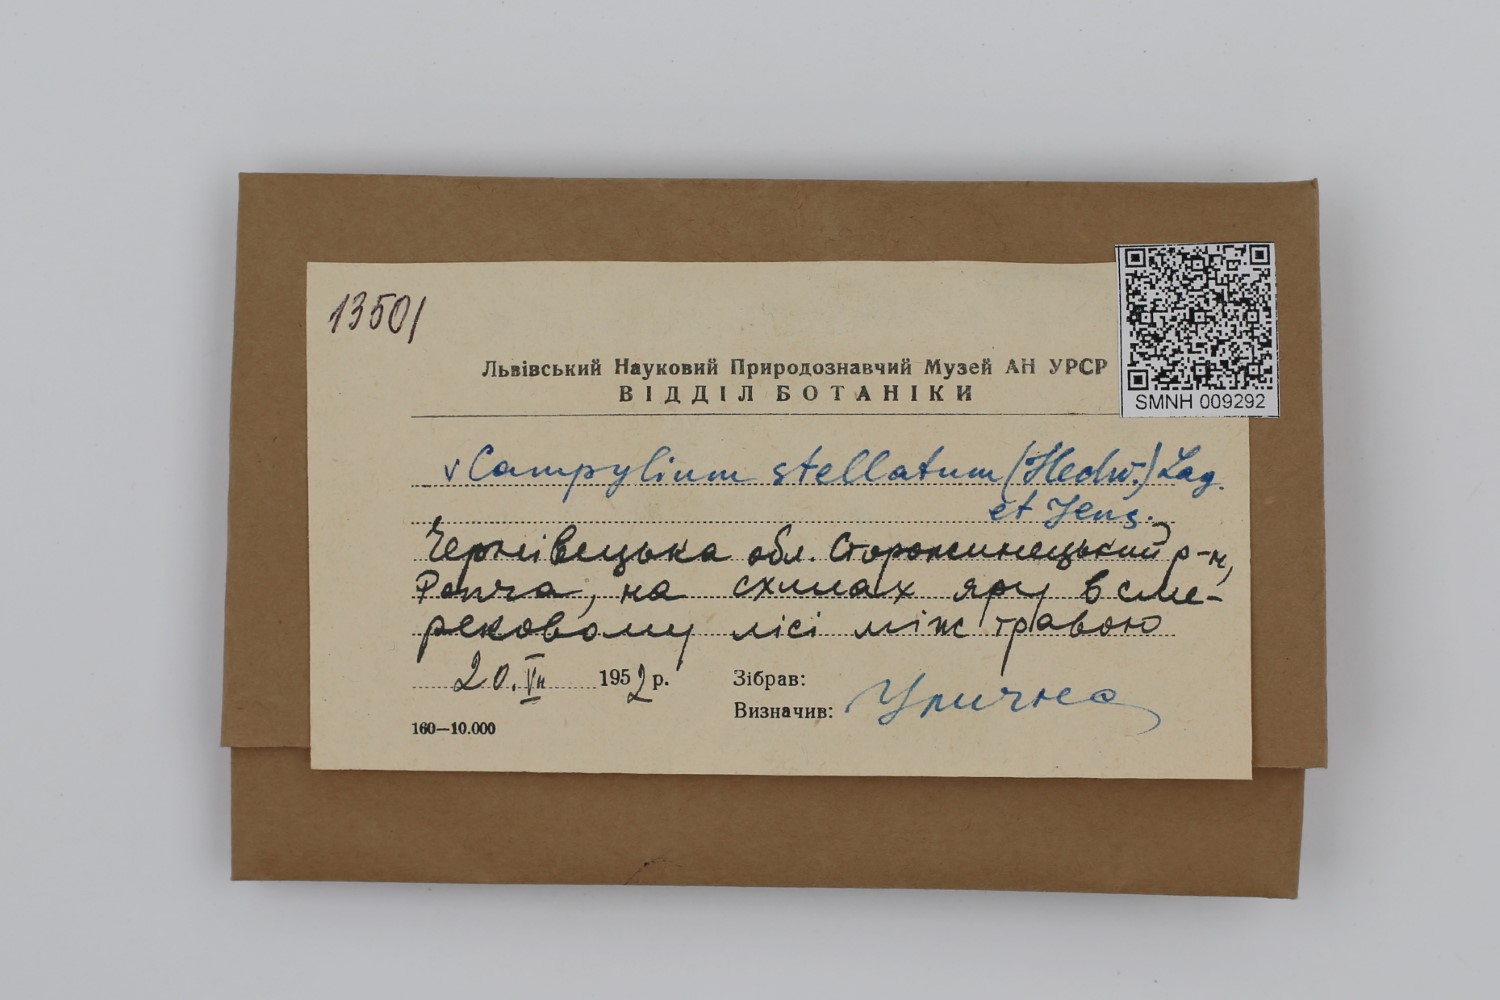 13501
Львівський Науковий Природознавчий Музей АН УРСР
ВІДДІЛ БОТАНІКИ
SMNH 009292
v Campylium stellatum (Hedw.) Lag.
et Jens.
Чернівецька обл. Сторожинецький р-н,
Ропча, на схилах яру в сме-
рековому лісі між травою
20. VII 1952 р.
Зібрав:
Визначив:
160—10.000